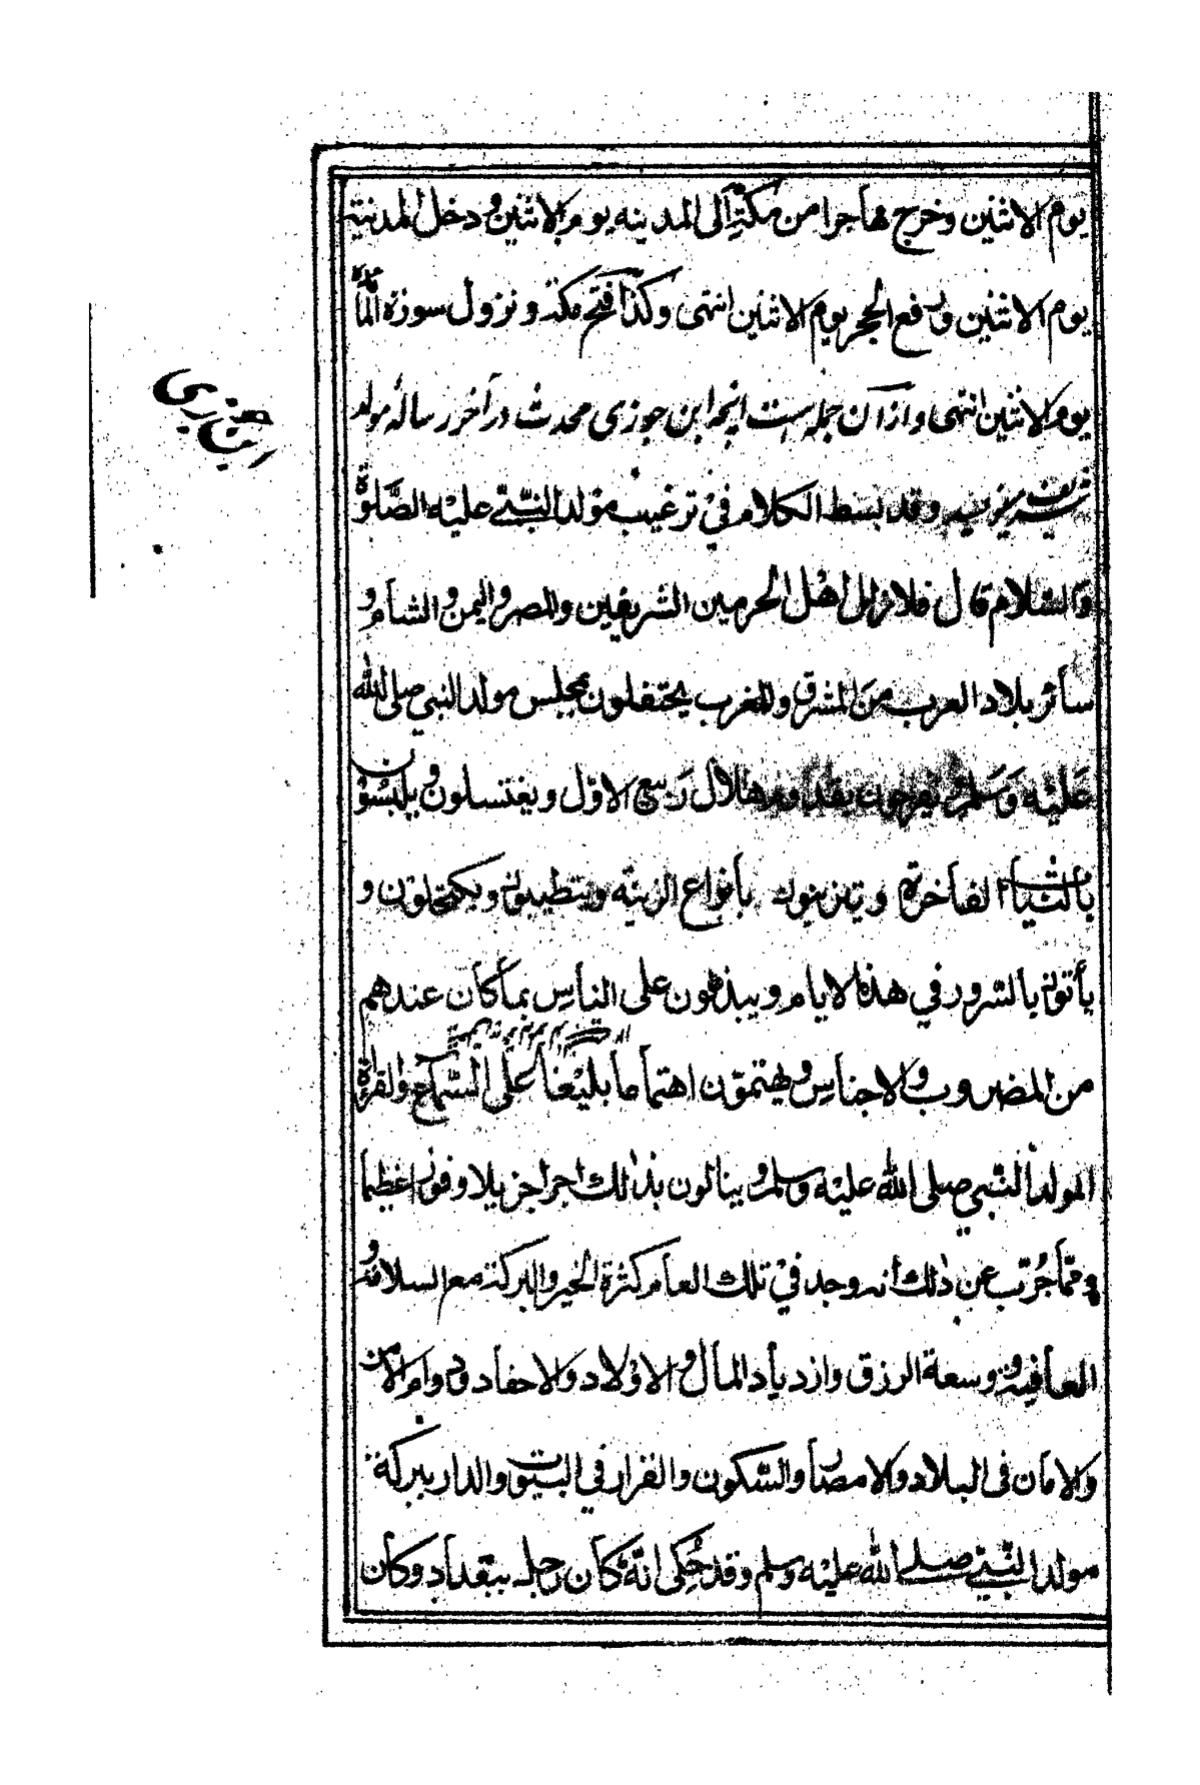 يوم الاثنين وخرج مهاجرا من مكة الى المدينه يوم الاثنين و دخل المدنية
يوم الاثنين ورفع الحجر يوم الاثنين انتهى وكذا فتح مكة و نزول سورة المائدة
يوم الاثنين انتهى وازان جمله ست انچه ابن جوزى محدث در آخر رساله مولد
شريف وقد بسط الكلام فى ترغيب مولد النبي عليه الصلوة
والسلام قال فلا زال اهل الحرمين الشريفين والمصر واليمن والشام و
سائر بلاد العرب من المشرق والمغرب يحتفلون بمجلس مولد النبي صلى الله
عليه وسلم و يفرحون بقدوم هلال ربيع الاول و يغتسلون و يلبسون
بالثياب الفاخرة و يتزينون بأنواع الزينة ويتطيبون ويكتحلون و
يأتون بالسرور في هذه الايام و يبذلون على الناس بما كان عندهم
من المضروب والاجناس و يهتمون اهتماما بليغا على السماع والقراة
المولد النبي صلى الله عليه وسلم و ينالون بذالك اجرا جزيلا و فوزا عظيما
و مما جرب عن ذلك أنه وجد في تلك العام كثرة الخير والبركة مع السلامة و
العافية و وسعة الرزق وازدياد المال و الاولاد والاحفاد و دوام الامن
والامان فى البلاد والامصار والسكون والقرار في البيوت والدار ببركة
مولد النبي صلى الله عليه وسلم وقد حكى انه كان رجل ببغداد وكان